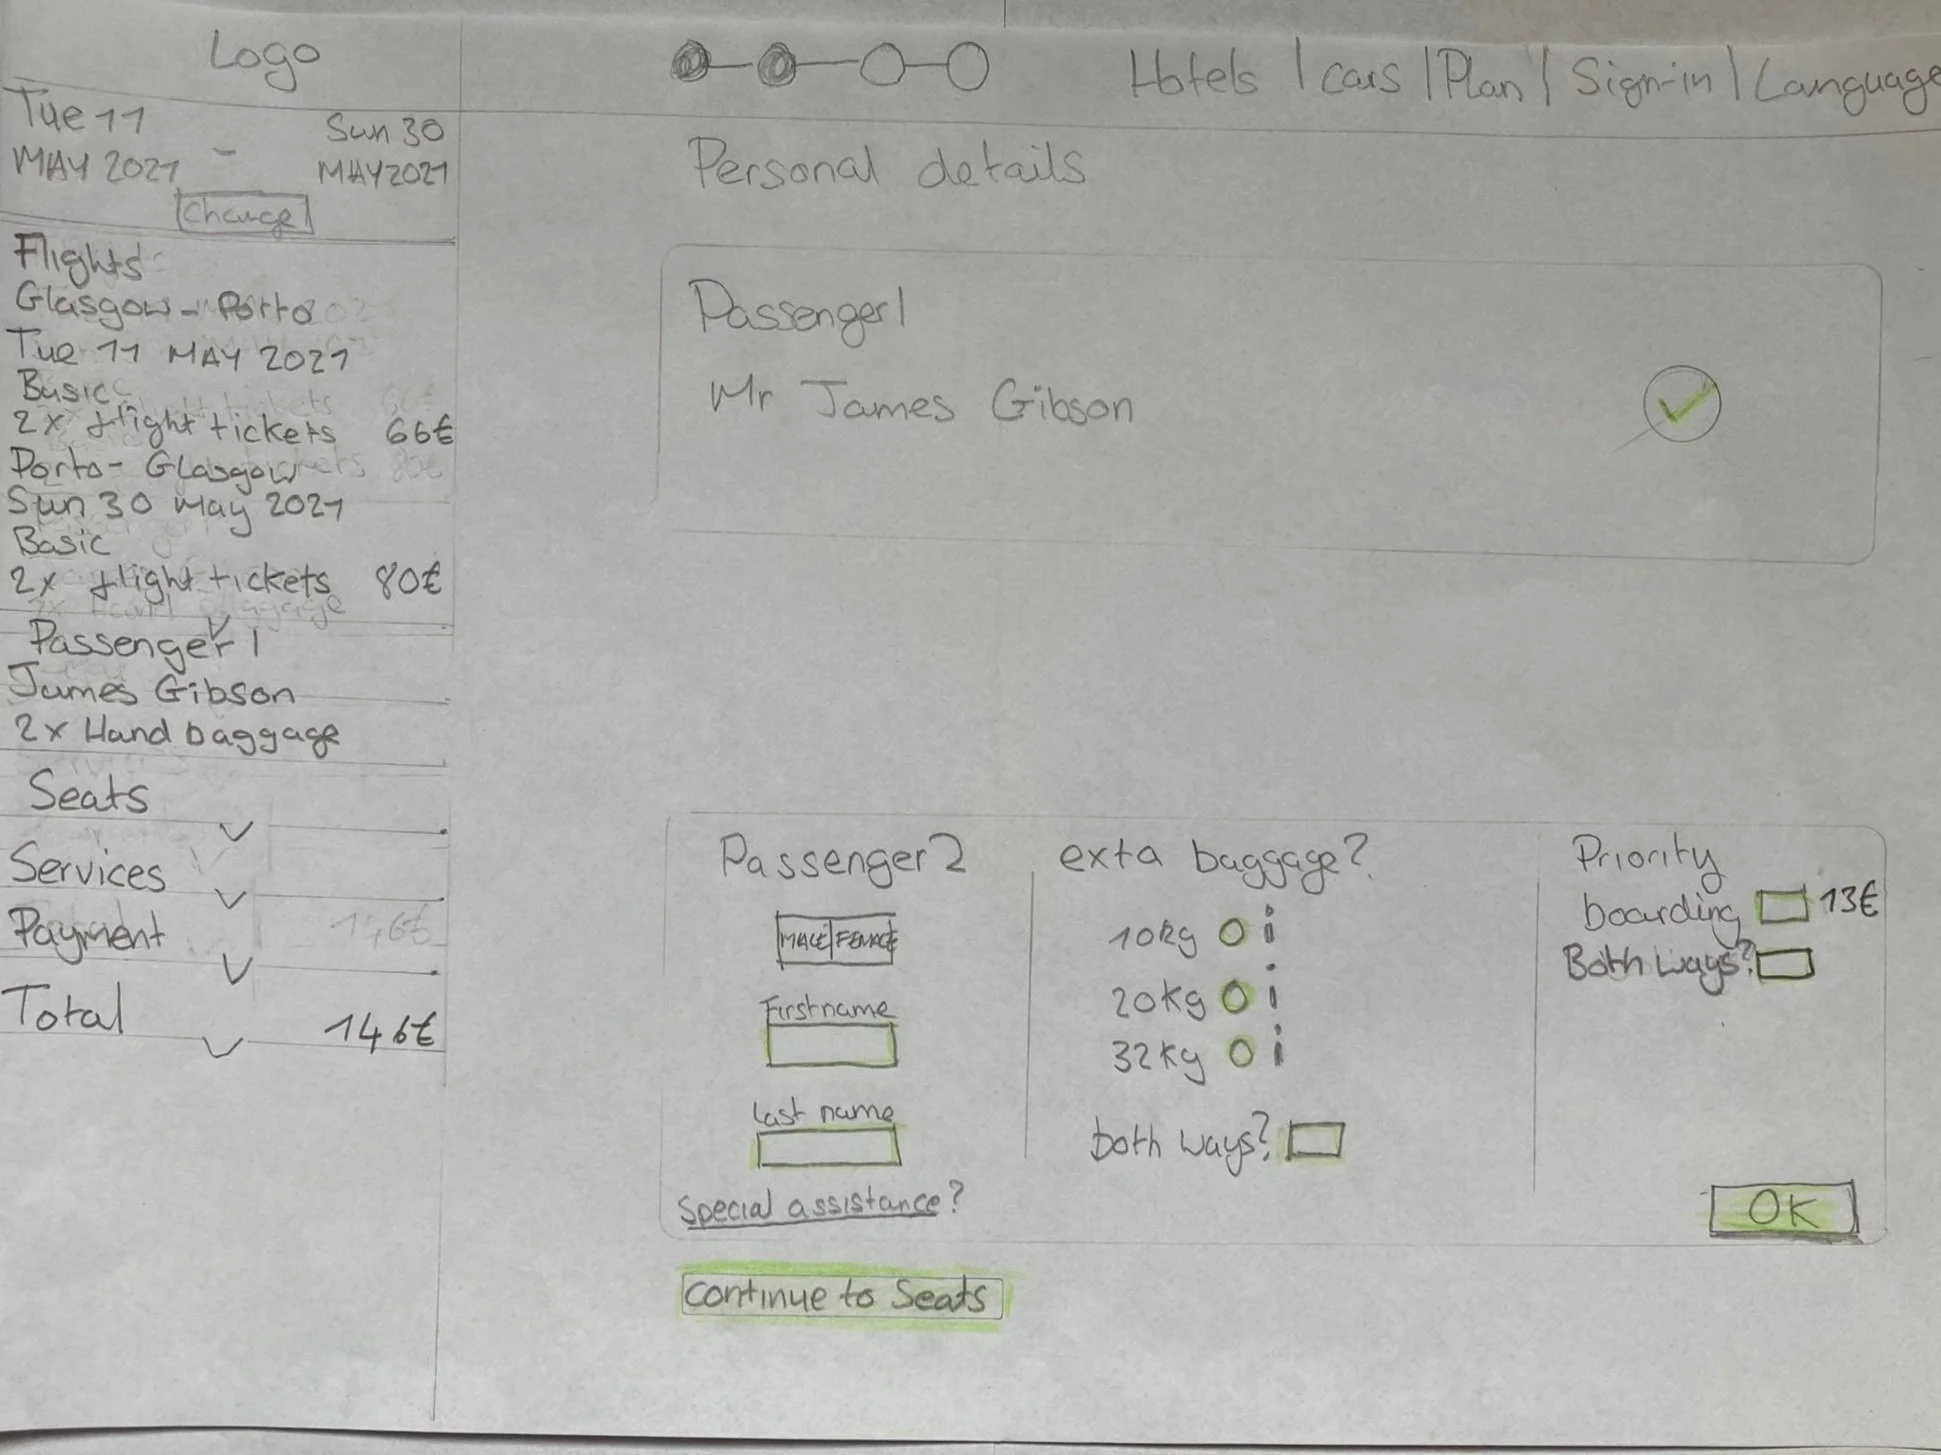 Logo
Hotels | Cars | Plan | Sign-in | Language
Tue 11
MAY 2021
-
Sun 30
MAY 2021
Change
Flights
Glasgow - Porto
Tue 11 MAY 2021
Basic
2x flight tickets 66€
Porto - Glasgow
Sun 30 May 2021
Basic
2x flight tickets 80€
Passenger 1
James Gibson
2x Hand baggage
Seats
Services
Payment 146€
Total 146€
Personal details
Passenger 1
Mr James Gibson
Passenger 2
MALE FEMALE
First name
Last name
Special assistance?
exta baggage?
10kg i
20kg i
32kg i
both ways?
Priority
boarding 13€
Both ways?
OK
continue to Seats